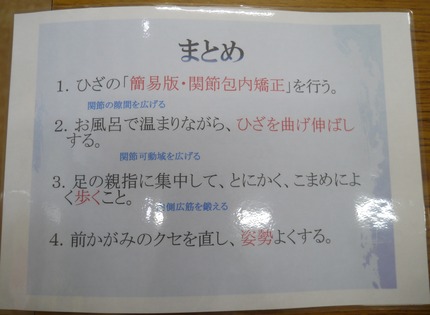 まとめ
1. ひざの「簡易版・関節包内矯正」を行う。
関節の隙間を広げる
2. お風呂で温まりながら、ひざを曲げ伸ばし
する。
関節可動域を広げる
3. 足の親指に集中して、とにかく、こまめによ
く歩くこと。
側広筋を鍛える
4. 前かがみのクセを直し、姿勢よくする。